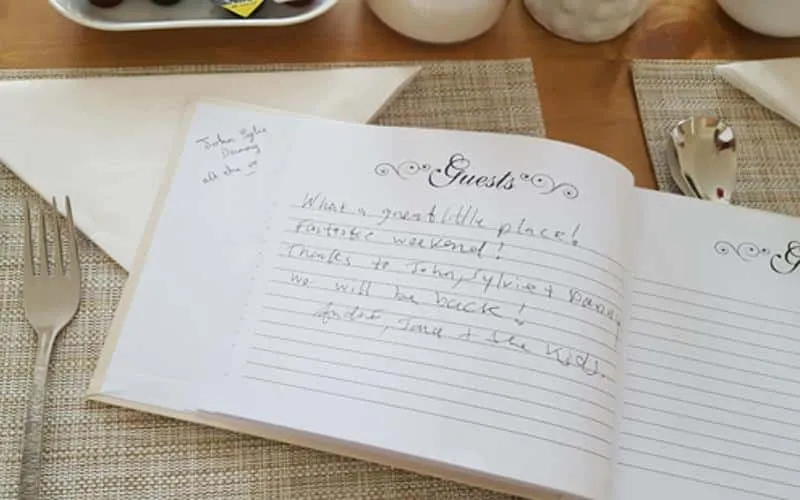 John Sylvie
Danny
all the
Guests
What a great little place!
Fantastic weekend!
Thanks to John, Sylvie + Danny
we will be back!
Andre, Jane + the Kids.
G